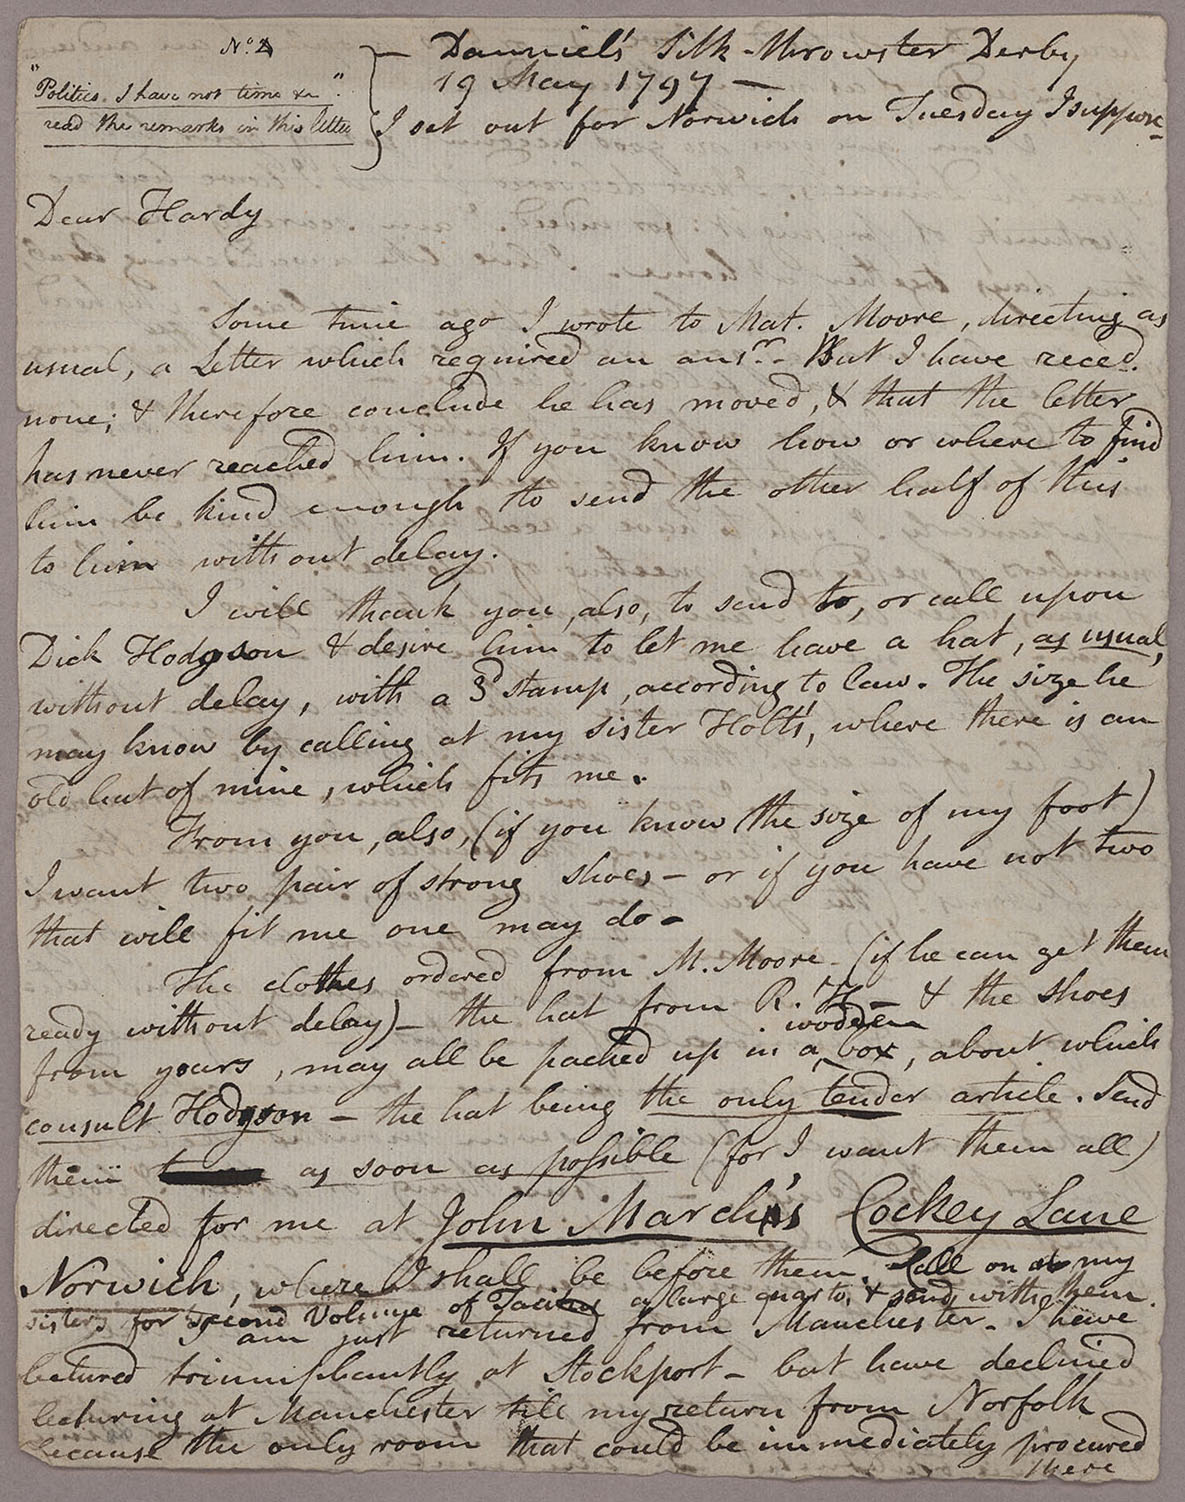 No. 2
"Politics. I have not time &c"
read the remarks in this letter
Danniel's Silk-throwster Derby
19 May 1797 —
I set out for Norwich on Tuesday I suppose
Dear Hardy
Some time ago I wrote to Mat. Moore, directing as
usual, a Letter which required an ansr. - But I have reced.
none; & therefore conclude he has moved, & that the letter
has never reached him. If you know how or where to find
him be kind enough to send the other half of this
to him without delay.
I will thank you, also, to send to, or call upon
Dick Hodgson & desire him to let me have a hat, as usual,
without delay, with a 3d stamp, according to law. The size he
may know by calling at my sister Holt's, where there is an
old hat of mine, which fits me.
From you, also, (if you know the size of my foot)
I want two pair of strong shoes - or if you have not two
that will fit me one may do -
The clothes ordered from M. Moore - (if he can get them
ready without delay) - the hat from R. H - & the shoes
from yours, may all be packed up in a wooden box, about which
consult Hodgson - the hat being the only tender article. Send
them as soon as possible (for I want them all)
directed for me at John March's Cockey Lane
Norwich, where I shall be before them. Call on my
sisters for second Volume of Tacitus a large quarto, & send with them.
I am just returned from Manchester - I have
lectured triumphantly at Stockport - but have declined
lecturing at Manchester till my return from Norfolk
because the only room that could be immediately procured
there